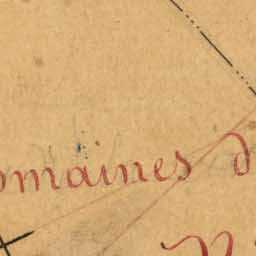 omaines d